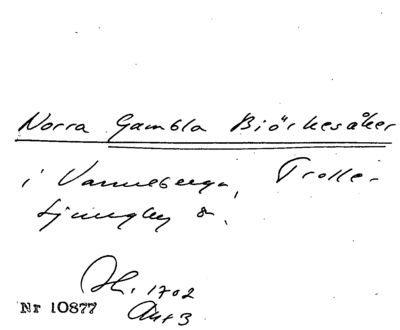 Norra Gambla Biörkesåker
i Vanneberga, Trolle-
Ljungby s.
1702
Nr 10877